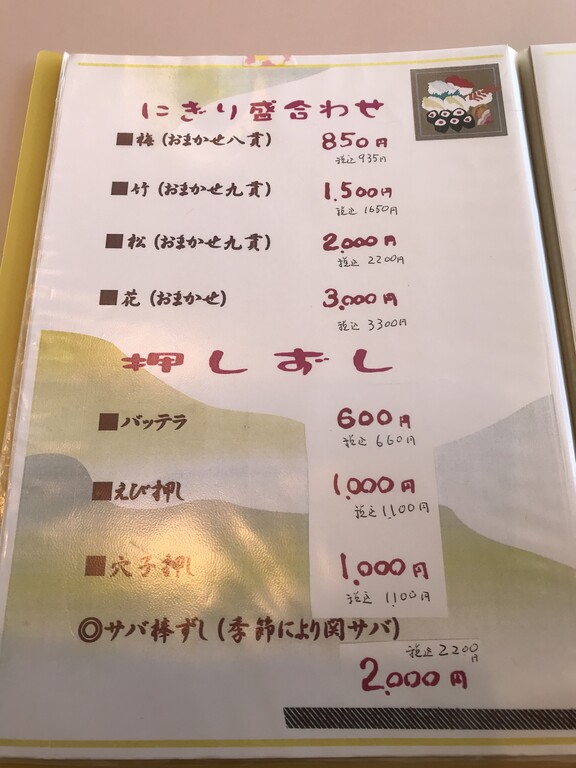 にぎり盛合わせ
■梅(おまかせ八貫) 850円
税込935円
■竹(おまかせ九貫) 1,500円
税込1650円
■松(おまかせ九貫) 2,000円
税込2200円
■花(おまかせ) 3,000円
税込3300円
押しずし
■バッテラ 600円
税込660円
■えび押し 1,000円
税込1,100円
■穴子押し 1,000円
税込1,100円
◎サバ棒ずし(季節により関サバ)
税込2,200円
2,000円